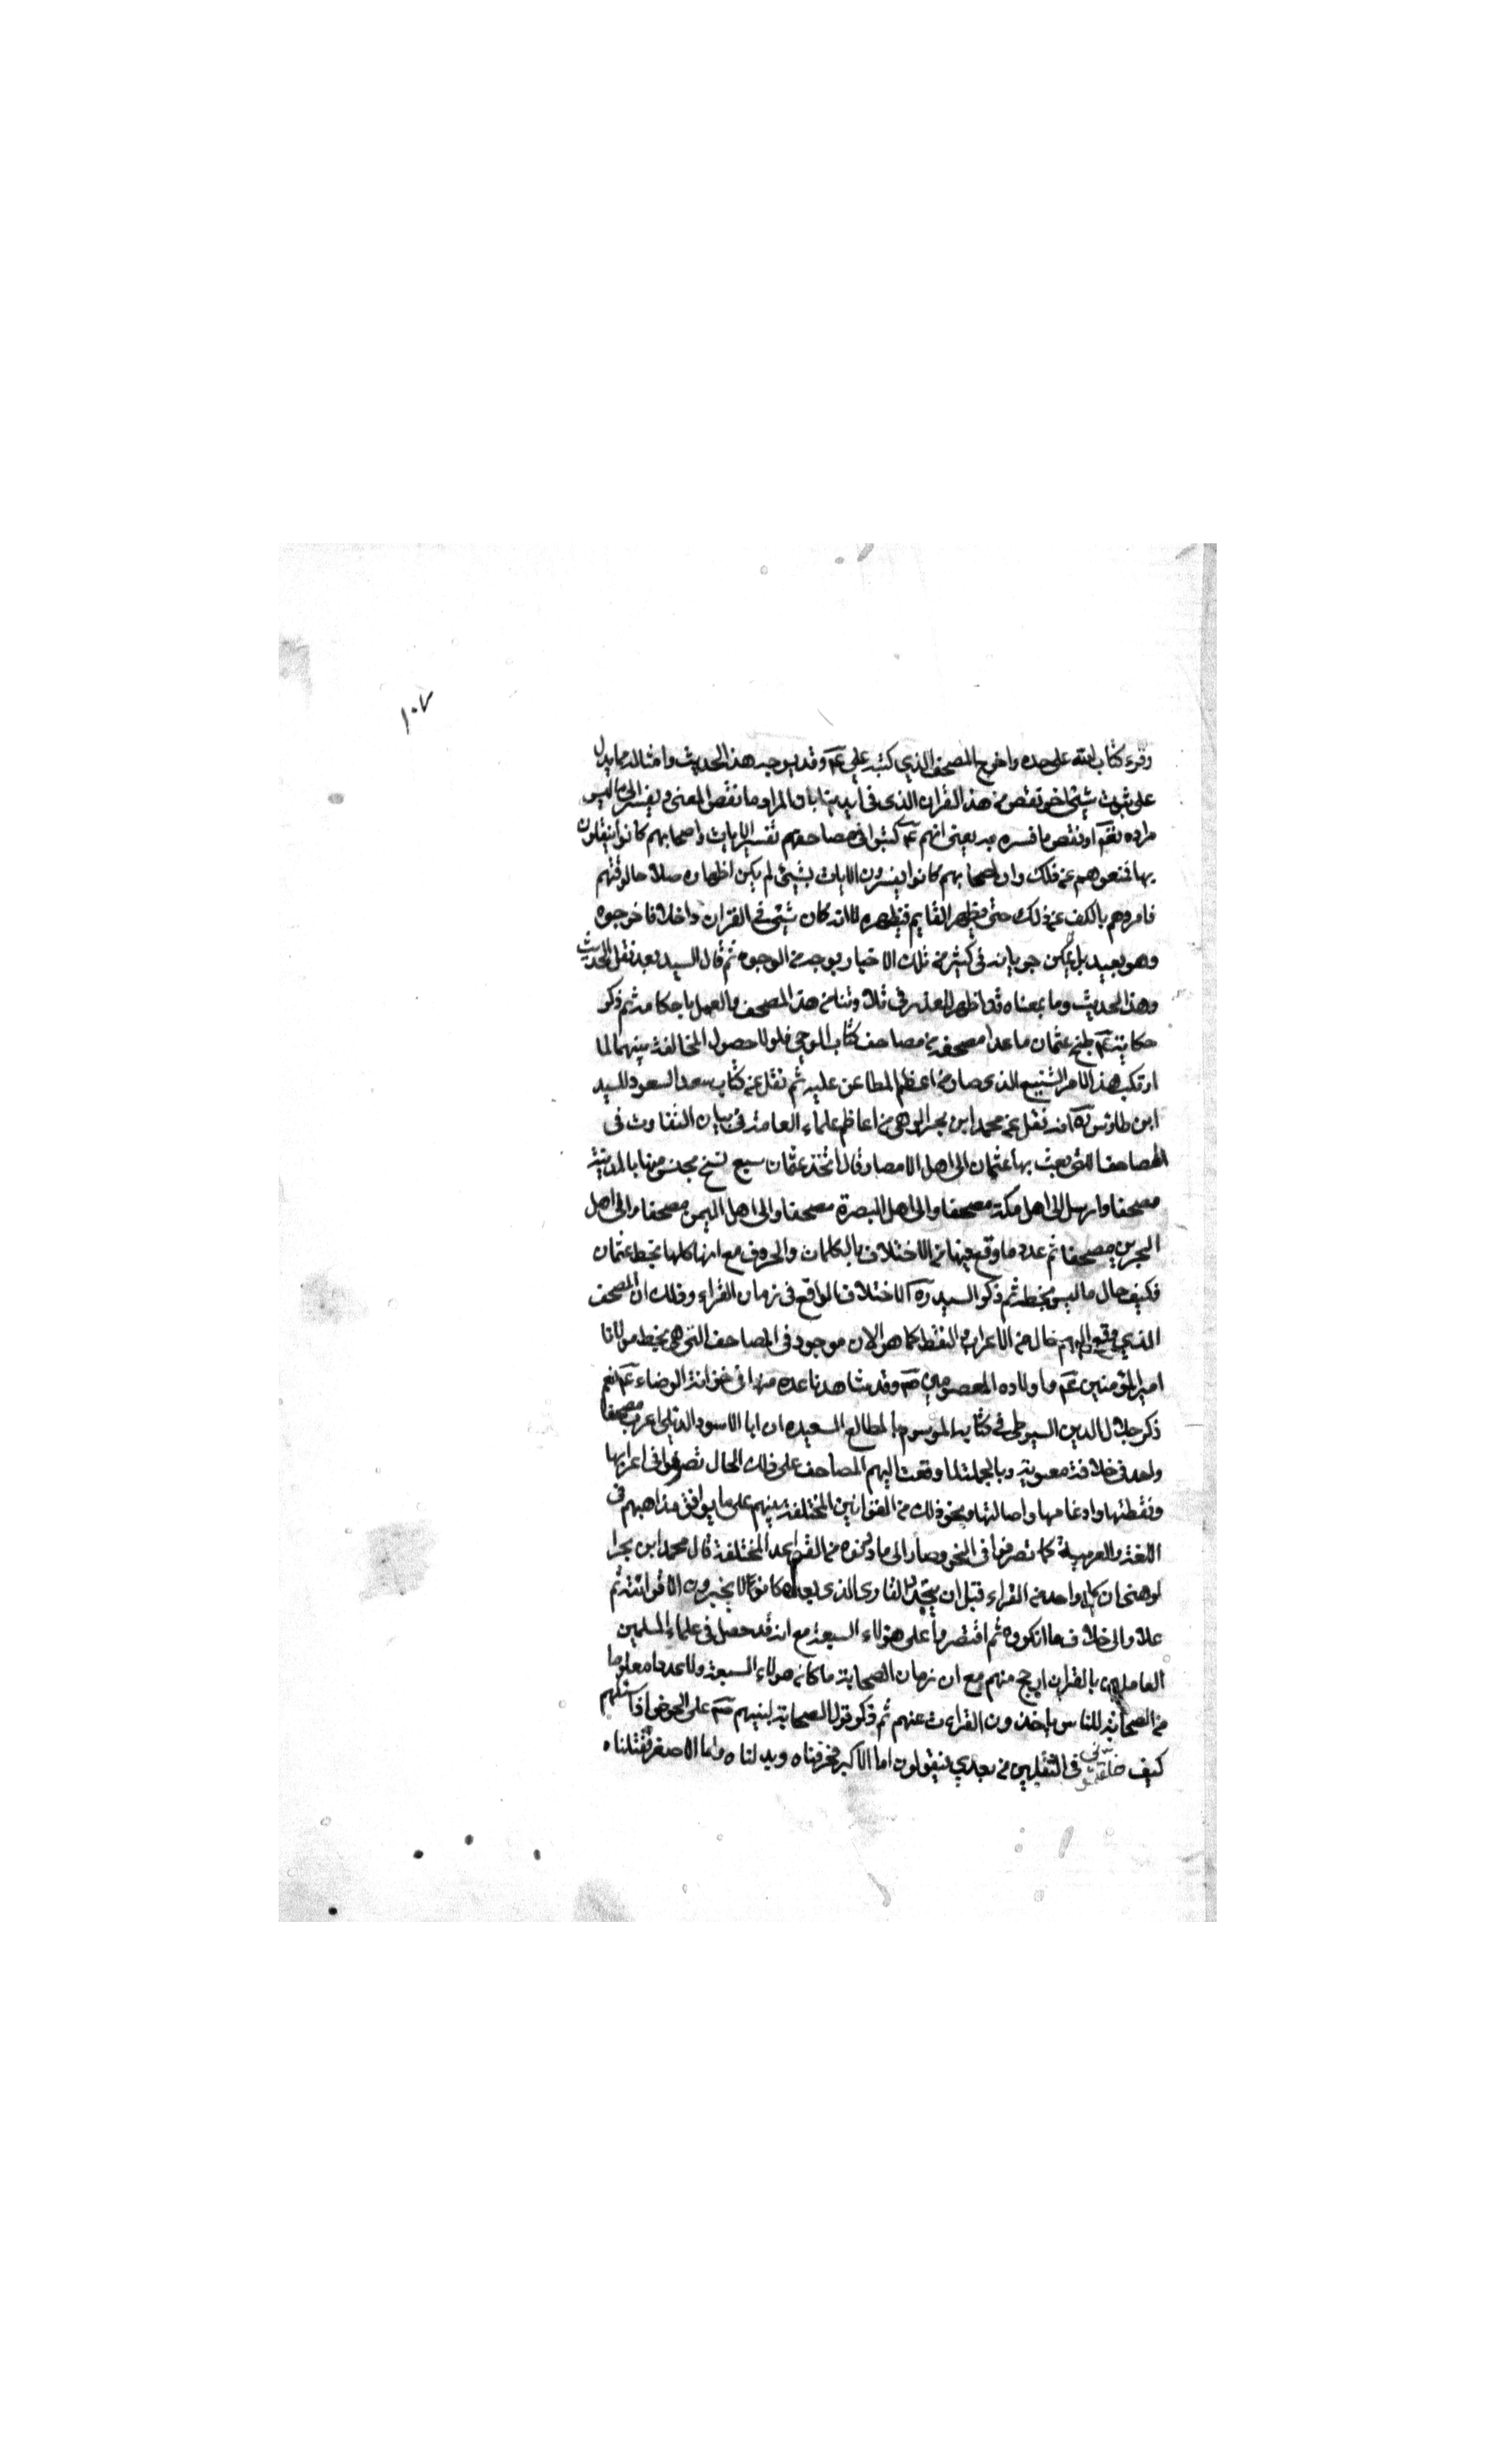 ١٠٧
وقرء كتاب الله على حده واخرج المصحف الذي كتبه علي ع وقد يوجه هذا الحديث وامثاله مما يدل
على ثبوت شيئ اخر نقص من هذا القران الذى فى ايدينا بان المراد ما نقص المعنى وتفسير الى ما ليس
مراده تع او نقص ما فسره به يعنى انهم ع كتبوا فى مصاحفهم تفسير الايات واصحابهم كانوا ينقلون
بها فمنعوهم عن ذلك وان اصحابهم كانوا يفسرون الايات بشيئ لم يكن اظهاره صلاحا لوقتهم
فامروهم بالكف عن ذلك حتى يظهر القايم فيظهره لا انه كان شيئ فى القران داخلا فاخرجوه
وهو بعيد بل يمكن جريانه فى كثير من تلك الاخبار بوجه من الوجوه ثم قال السيد بعد نقل الحديث
وهذا الحديث وما بمعناه قد اظهر العذر فى تلاوتنا من هذا المصحف والعمل باحكامه ثم ذكر
حكاية طبخ عثمان ما عدا مصحفه من مصاحف كتاب الوحى فلولا حصول المخالفة بينهما لما
ارتكب هذا الامر الشنيع الذى صار من اعظم المطاعن عليه ثم نقل عن كتاب سعد السعود للسيد
ابن طاوس انه نقل عن محمد ابن بحر الرهنى من اعاظم علماء العامة فى بيان التفاوت فى
المصاحف التى بعث بها عثمان الى اهل الامصار قال اتخذ عثمان سبع نسخ فحبس منها بالمدينة
مصحفا وارسل الى اهل مكة مصحفا والى اهل البصرة مصحفا والى اهل اليمن مصحفا والى اهل
البحرين مصحفا ثم عدد ما وقع فيها من الاختلاف بالكلمات والحروف مع انها كلها بخط عثمان
فكيف حال ما ليس بخطه ثم ذكر السيد ره الاختلاف الواقع فى زمان القراء وذلك ان المصحف
الذي وقع اليهم خال من الاعراب والنقط كما هو الان موجود فى المصاحف التى هى بخط مولانا
امير المؤمنين ع واولاده المعصومين ع وقد شاهدنا عده منها فى خزانة الرضاء ع نعم
ذكر جلال الدين السيوطى فى كتابه الموسوم بالمطالع السعيده ان ابا الاسود الدئلى اعرب مصحفا
واحد فى خلافة معوية وبالجملة لما وقعت اليهم المصاحف على ذلك الحال تصرفوا فى اعرابها
ونقطها وادغامها وامالتها ونحو ذلك من القوانين المختلفة بينهم على ما يوافق مذاهبهم فى
اللغة والعربية كما تصرفوا فى النحو وصار الى ما دونوه من القواعد المختلفة قال محمد ابن بحر ا
لرهنى ان كل واحد من القراء قبل ان يتجدد القارى الذى بعده كانوا لا يجيزون الا قرائته ثم
الى خلاف ما انكروه ثم اقتصروا على هؤلاء السبعة مع انه قد حصل فى علماء المسلمين
العاملين بالقران ارجح منهم مع ان زمان الصحابة ما كان هولاء السبعة ولا عددا معلوما
من الصحابة للناس ياخذون القراءت عنهم ثم ذكر قول الصحابة لنبيهم ص على الحوض اذا سئلهم
كيف خلفتمونى فى الثقلين من بعدي فيقولون اما الاكبر فحرفناه وبدلناه واما الاصغر فقتلناه